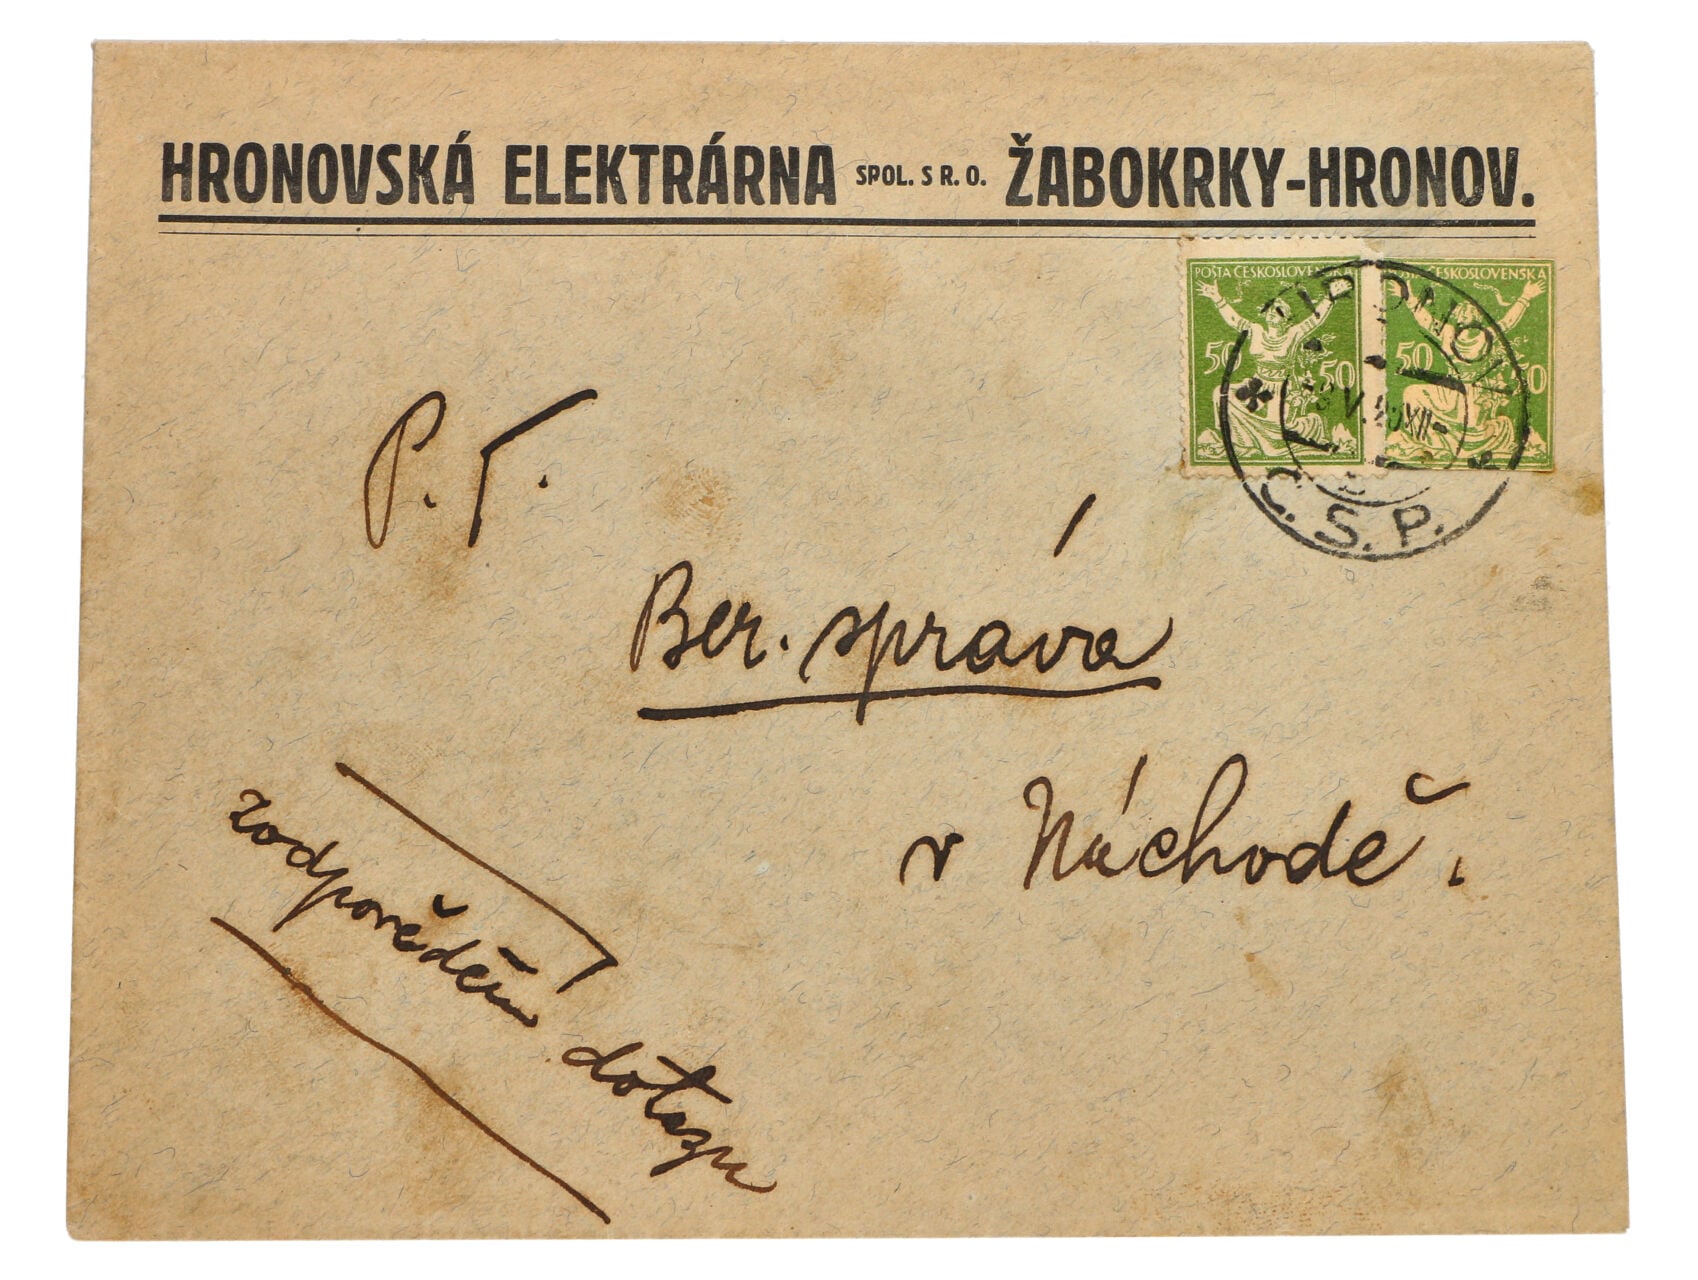 HRONOVSKÁ ELEKTRÁRNA SPOL. S R. O. ŽABOKRKY-HRONOV.
POŠTA ČESKOSLOVENSKÁ
ČESKOSLOVENSKÁ
50 50
50
HRONOV
Č.S.P.
P. T.
Ber. správa
v Náchodě.
zodpovědění dotazu